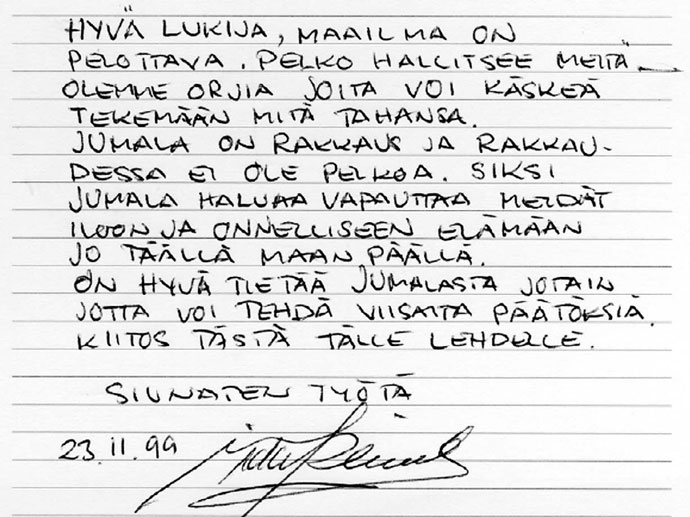 HYVÄ LUKIJA, MAAILMA ON
PELOTTAVA. PELKO HALLITSEE MEITÄ
OLEMME ORJIA JOITA VOI KÄSKEÄ
TEKEMÄÄN MITÄ TAHANSA.
JUMALA ON RAKKAUS JA RAKKAU-
DESSA EI OLE PELKOA. SIKSI
JUMALA HALUAA VAPAUTTAA MEIDÄT
ILOON JA ONNELLISEEN ELÄMÄÄN
JO TÄÄLLÄ MAAN PÄÄLLÄ.
ON HYVÄ TIETÄÄ JUMALASTA JOTAIN
JOTTA VOI TEHDÄ VIISAITA PÄÄTÖKSIÄ.
KIITOS TÄSTÄ TÄLLE LEHDELLE.
SIUNATEN TYÖTÄ
23.11.99